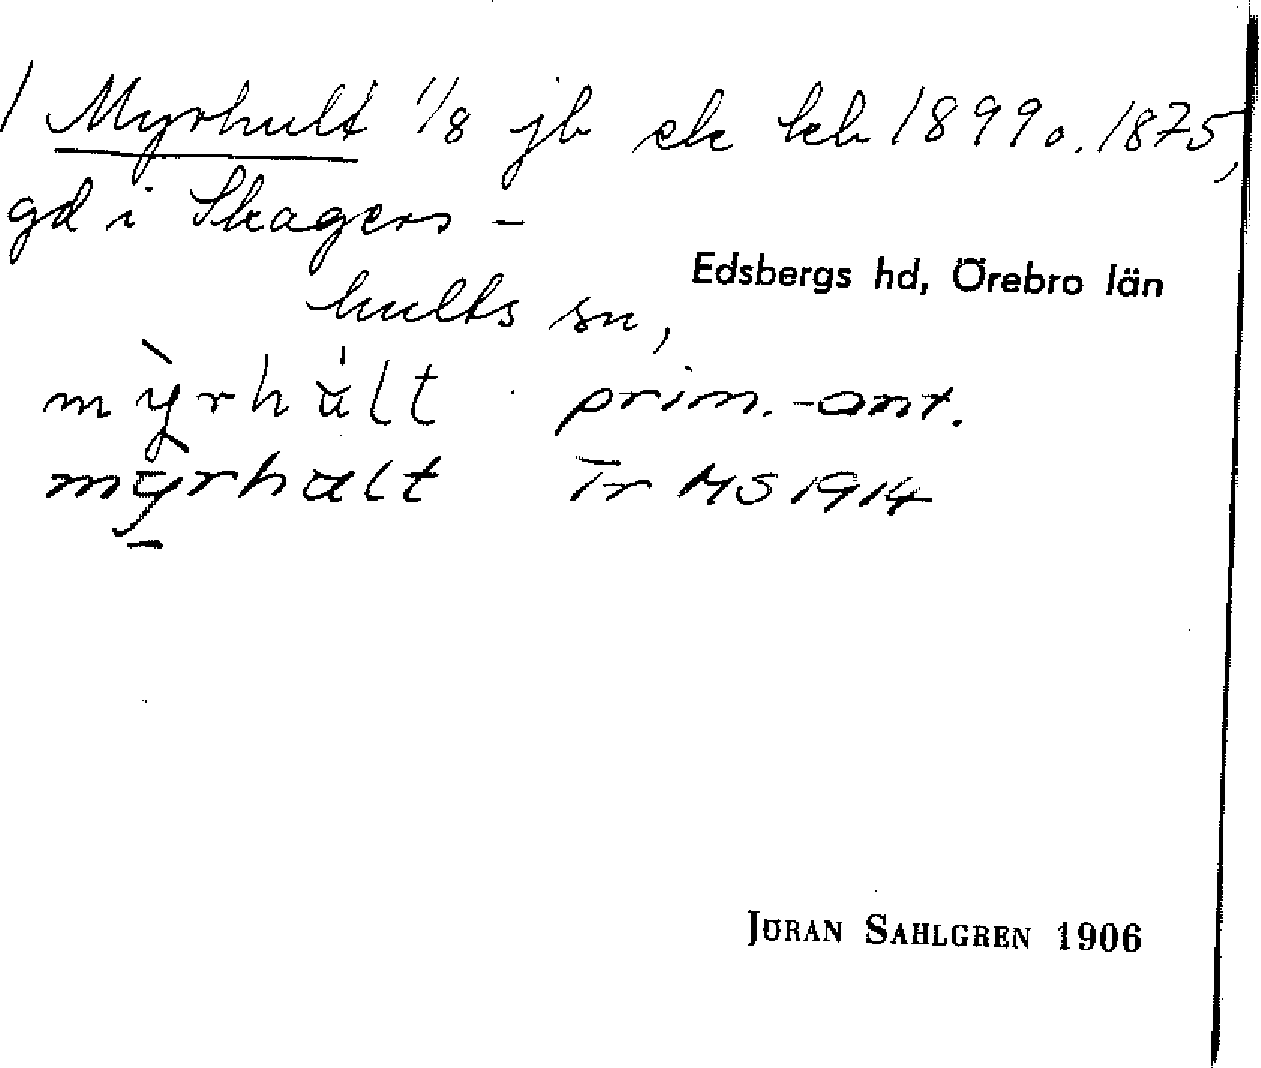 / Myrhult 1/8 jb ek kb 1899 o. 1875,
gd i Skagers-
hults sn,
Edsbergs hd, Örebro län
mỳrhu̇̀lt prim.-ant.
mỳrhult Tr MS 1914
JÖRAN SAHLGREN 1906